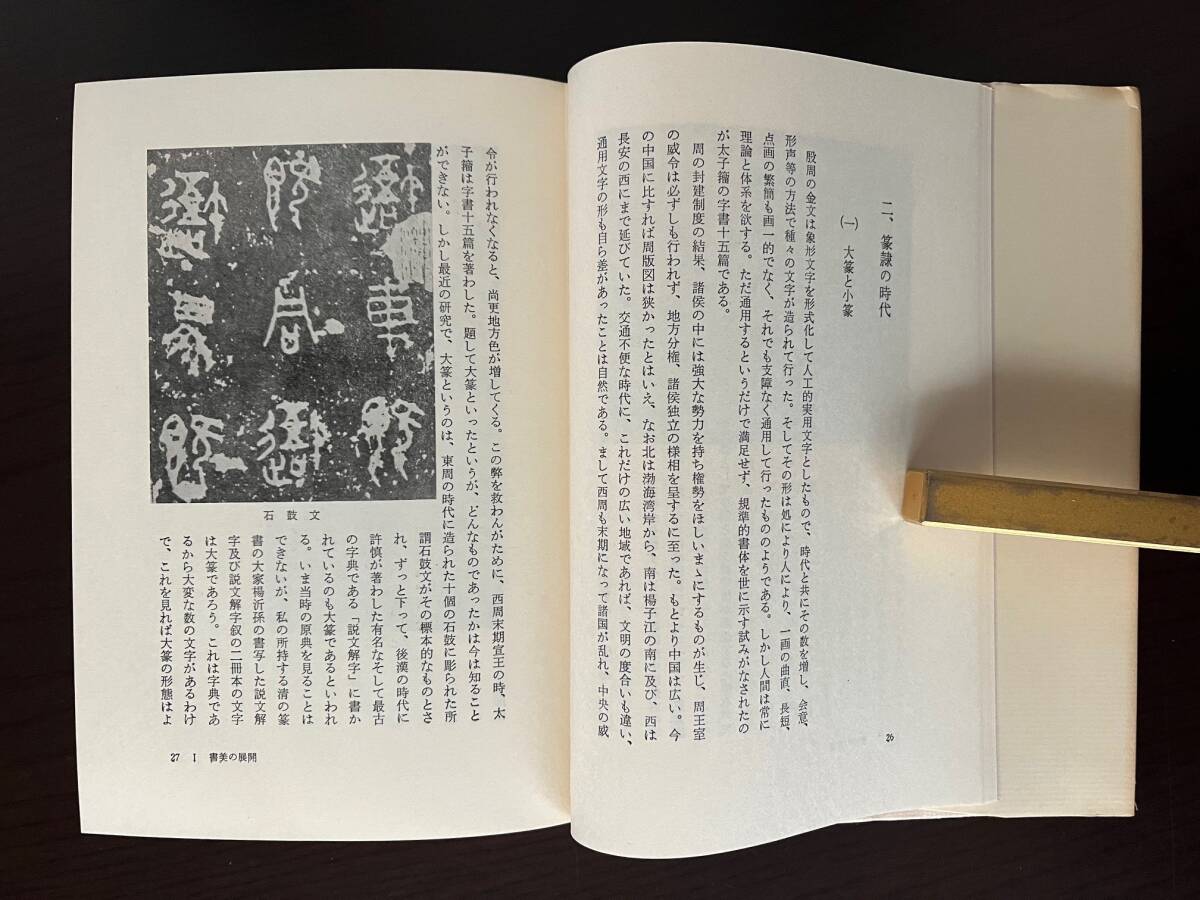 二、篆隷の時代
㈠ 大篆と小篆
殷周の金文は象形文字を形式化して人工的実用文字としたもので、時代と共にその数を増し、会意、
形声等の方法で種々の文字が造られて行った。そしてその形は処により人により、一画の曲直、長短、
点画の繁簡も画一的でなく、それでも支障なく通用して行ったもののようである。しかし人間は常に
理論と体系を欲する。ただ通用するというだけで満足せず、規準的書体を世に示す試みがなされたの
が太子籀の字書十五篇である。
周の封建制度の結果、諸侯の中には強大な勢力を持ち権勢をほしいまゝにするものが生じ、周王室
の威令は必ずしも行われず、地方分権、諸侯独立の様相を呈するに至った。もとより中国は広い。今
の中国に比すれば周版図は狭かったとはいえ、なお北は渤海湾岸から、南は楊子江の南に及び、西は
長安の西にまで延びていた。交通不便な時代に、これだけの広い地域であれば、文明の度合いも違い、
通用文字の形も自ら差があったことは自然である。まして西周も末期になって諸国が乱れ、中央の威
26
令が行われなくなると、尚更地方色が増してくる。この弊を救わんがために、西周末期宣王の時、太
子籀は字書十五篇を著わした。題して大篆といったというが、どんなものであったかは今は知ること
ができない。しかし最近の研究で、大篆というのは、東周の時代に造られた十個の石鼓に彫られた所
謂石鼓文がその標本的なものとさ
れ、ずっと下って、後漢の時代に
許慎が著わした有名なそして最古
の字典である「説文解字」に書か
れているのも大篆であるといわれ
る。いま当時の原典を見ることは
できないが、私の所持する清の篆
書の大家楊沂孫の書写した説文解
字及び説文解字叙の二冊本の文字
は大篆であろう。これは字典であ
るから大変な数の文字があるわけ
で、これを見れば大篆の形態はよ
石鼓文
27 Ⅰ 書美の展開